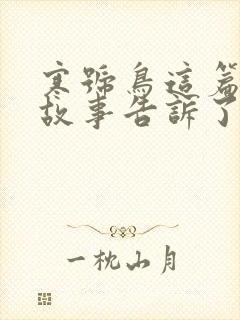 寒號鳥這篇
故事告訴了
一枕山月